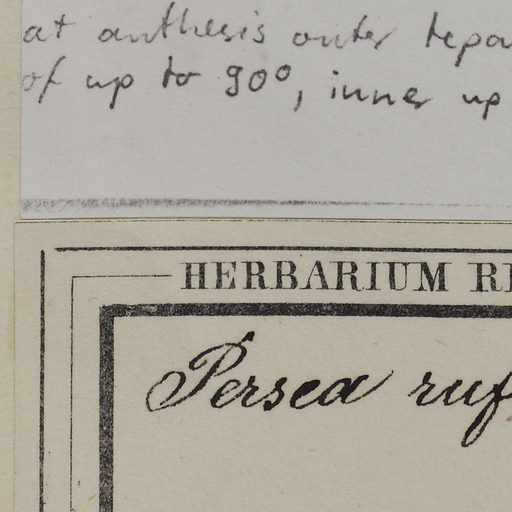 at anthesis outer tepa
of up to 90°, inner up
HERBARIUM RE
Persea ruf